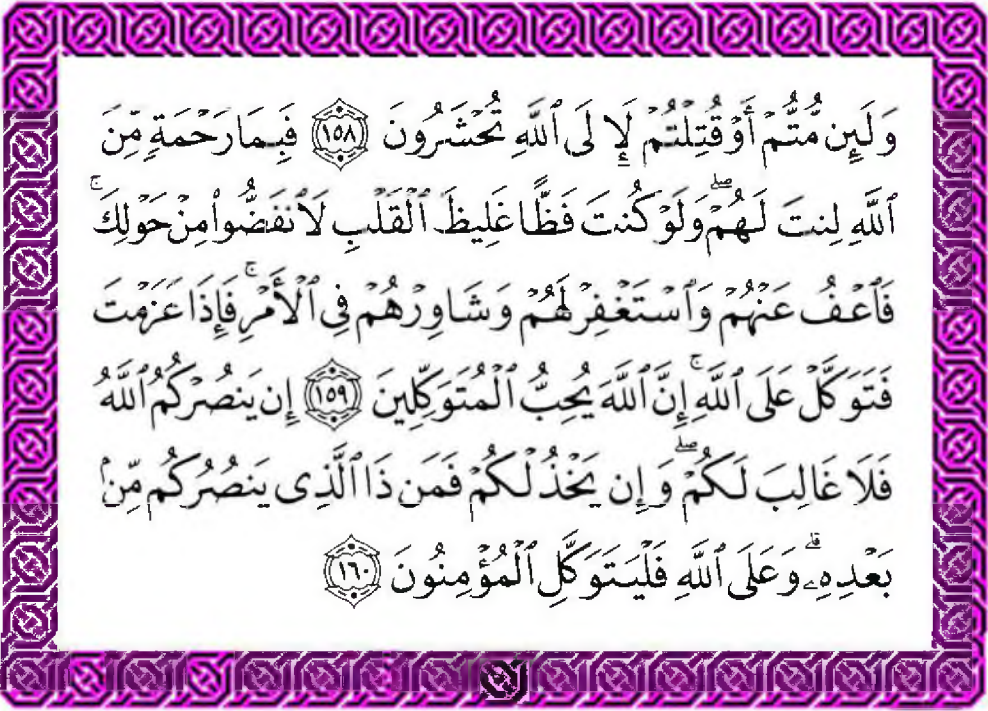 وَلَئِن مُّتُّمْ أَوْ قُتِلْتُمْ لَإِلَى ٱللَّهِ تُحْشَرُونَ ١٥٨ فَبِمَا رَحْمَةٍ مِّنَ
ٱللَّهِ لِنتَ لَهُمْ ۖ وَلَوْ كُنتَ فَظًّا غَلِيظَ ٱلْقَلْبِ لَٱنفَضُّوا۟ مِنْ حَوْلِكَ ۖ
فَٱعْفُ عَنْهُمْ وَٱسْتَغْفِرْ لَهُمْ وَشَاوِرْهُمْ فِى ٱلْأَمْرِ ۚ فَإِذَا عَزَمْتَ
فَتَوَكَّلْ عَلَى ٱللَّهِ ۚ إِنَّ ٱللَّهَ يُحِبُّ ٱلْمُتَوَكِّلِينَ ١٥٩ إِن يَنصُرْكُمُ ٱللَّهُ
فَلَا غَالِبَ لَكُمْ ۖ وَإِن يَخْذُلْكُمْ فَمَن ذَا ٱلَّذِى يَنصُرُكُم مِّنۢ
بَعْدِهِۦ ۗ وَعَلَى ٱللَّهِ فَلْيَتَوَكَّلِ ٱلْمُؤْمِنُونَ ١٦٠